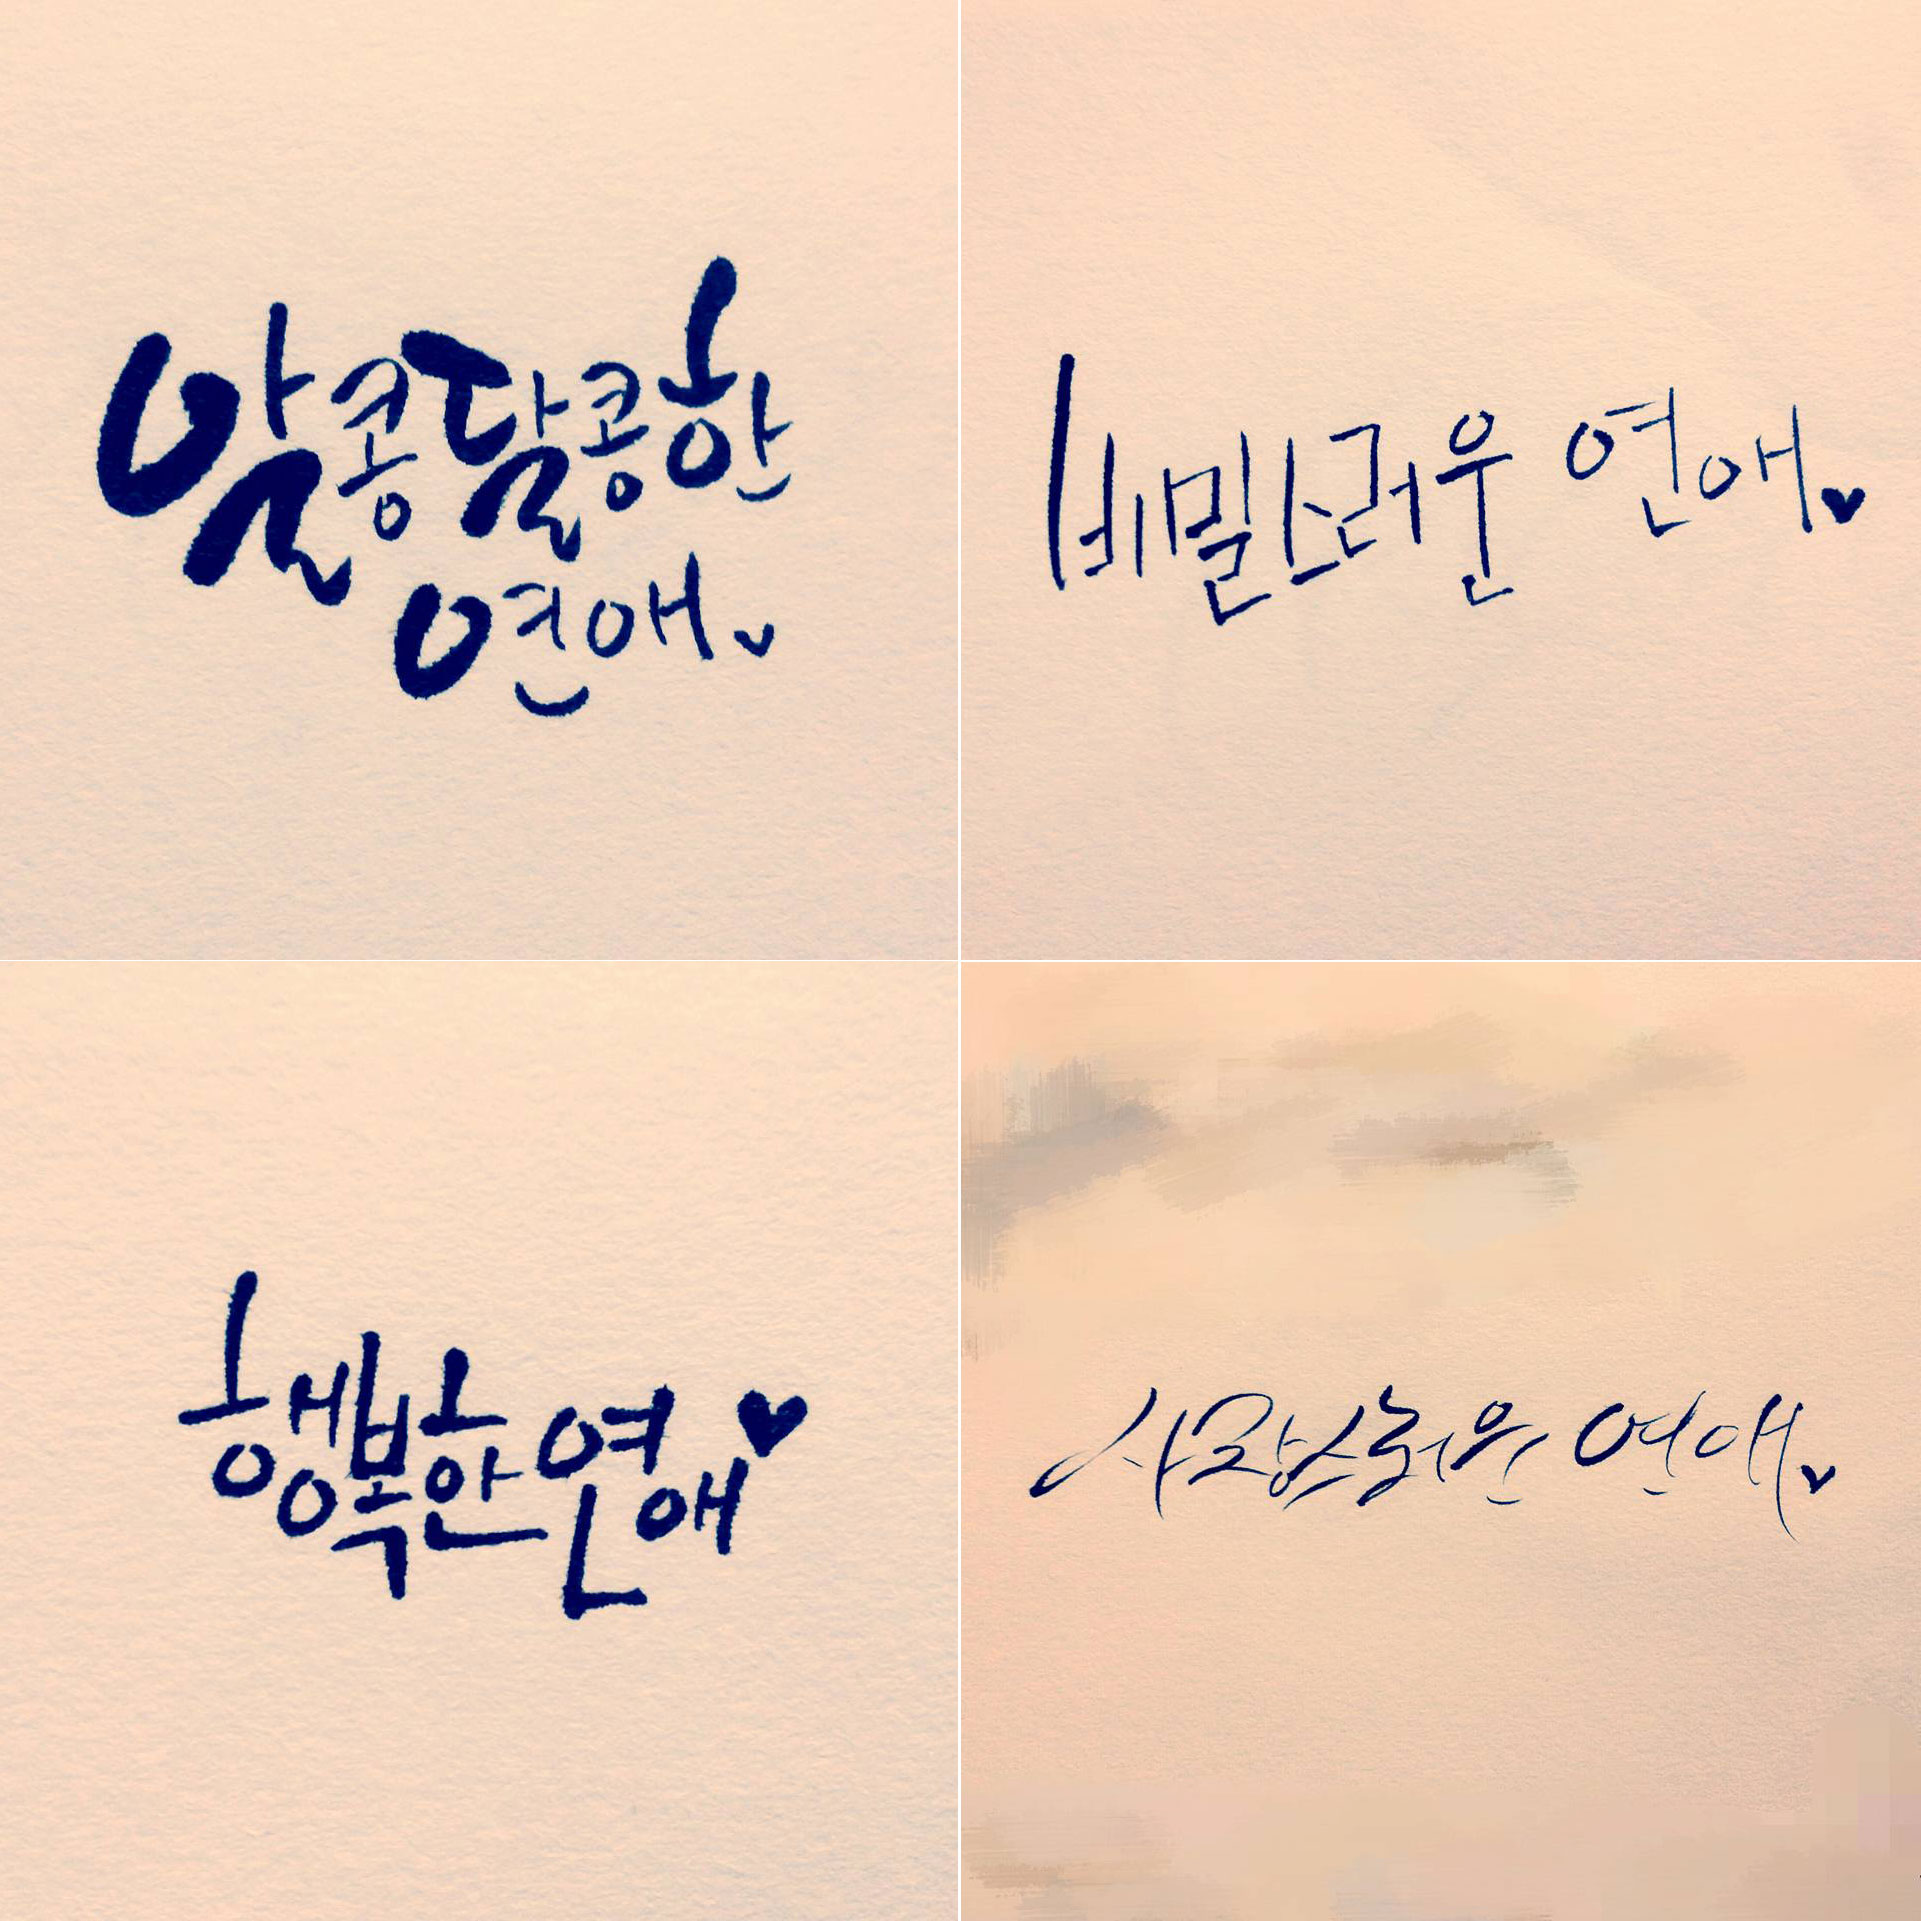 알콩달콩한
연애
비밀스러운 연애
행복한 연애
사랑스러운 연애